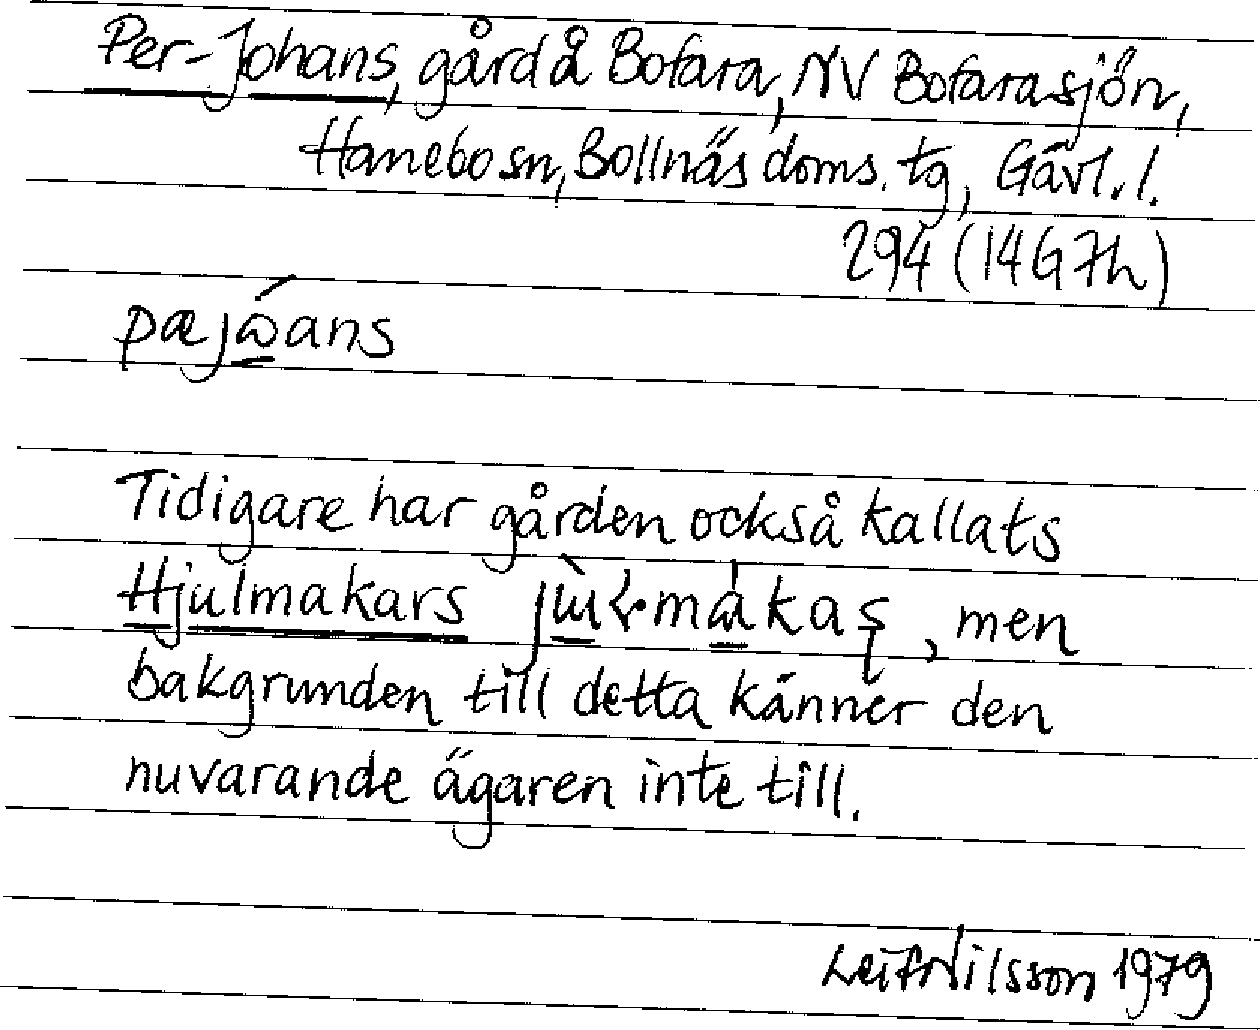 Per-Johans, gård å Bofara, NV Bofarasjön,
Hanebo sn, Bollnäs doms. tg, Gävl. l.
294 (14G7h)
pæjώ̲ans
Tidigare har gården också kallats
Hjulmakars, men
bakgrunden till detta känner den
nuvarande ägaren inte till.
Leif Nilsson 1979